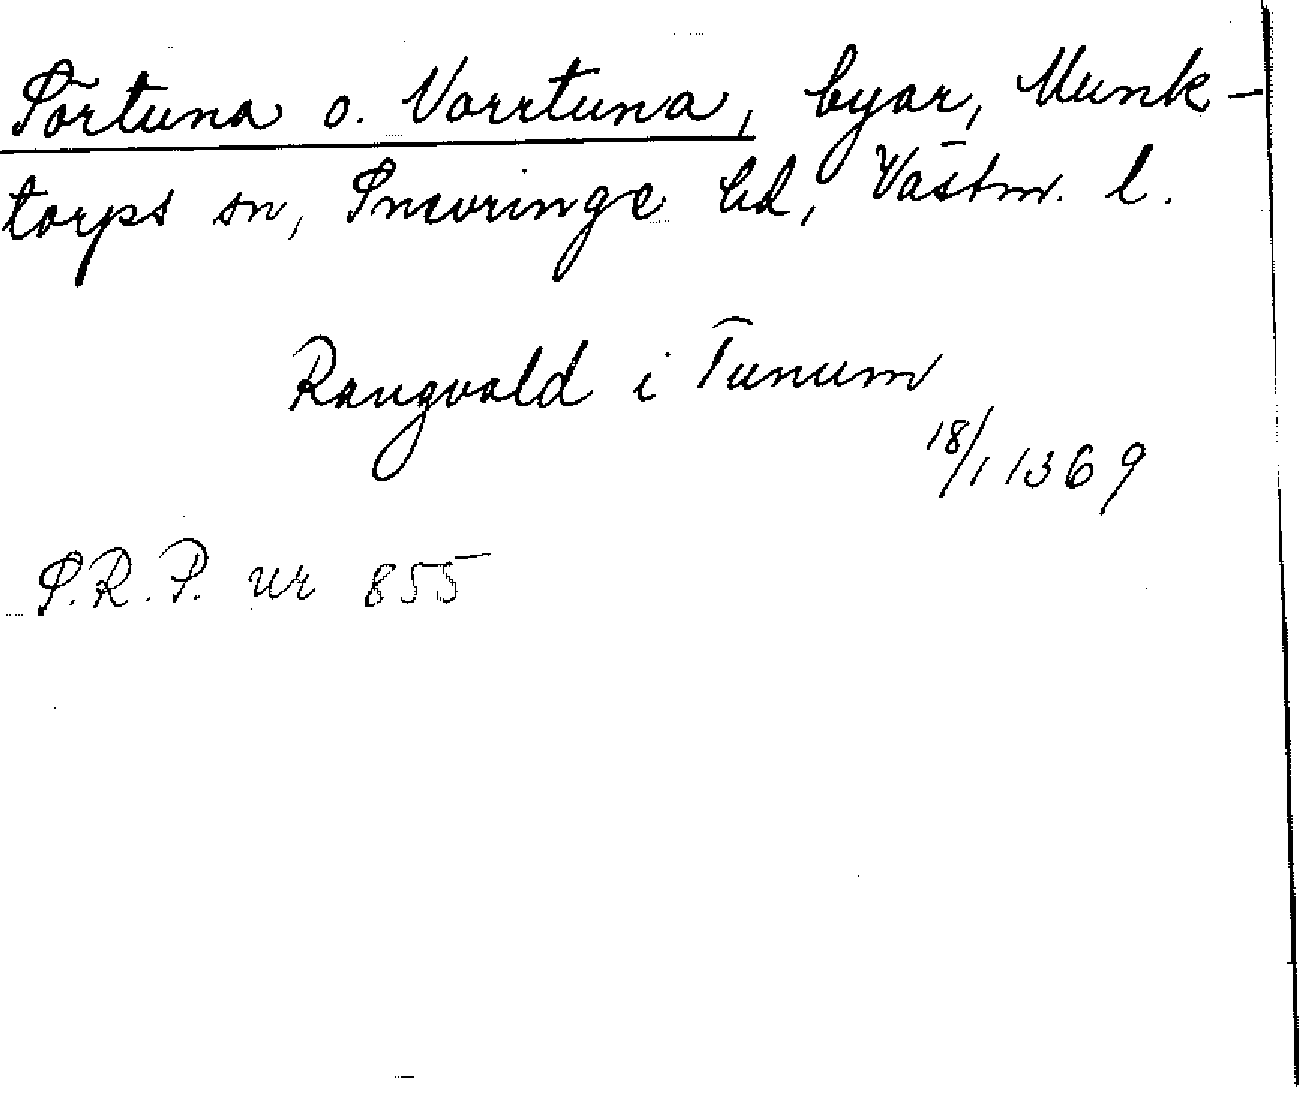 Sörtuna o. Norrtuna, byar, Munk-
torps sn, Snevringe hd, Västm. l.
Rangvald i Tunum
18/1 1369
S.R.P. nr 855